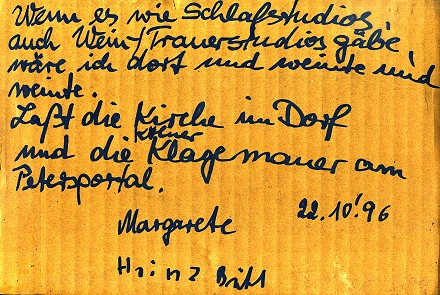 Wenn es wie Schlafstudios,
auch Wein-/Trauerstudios gäbe,
wäre ich dort und weinte und
weinte.
Laßt die Kirche im Dorf
und die Kölner Klagemauer am
Petersportal.
Margarete 22.10.'96
Heinz